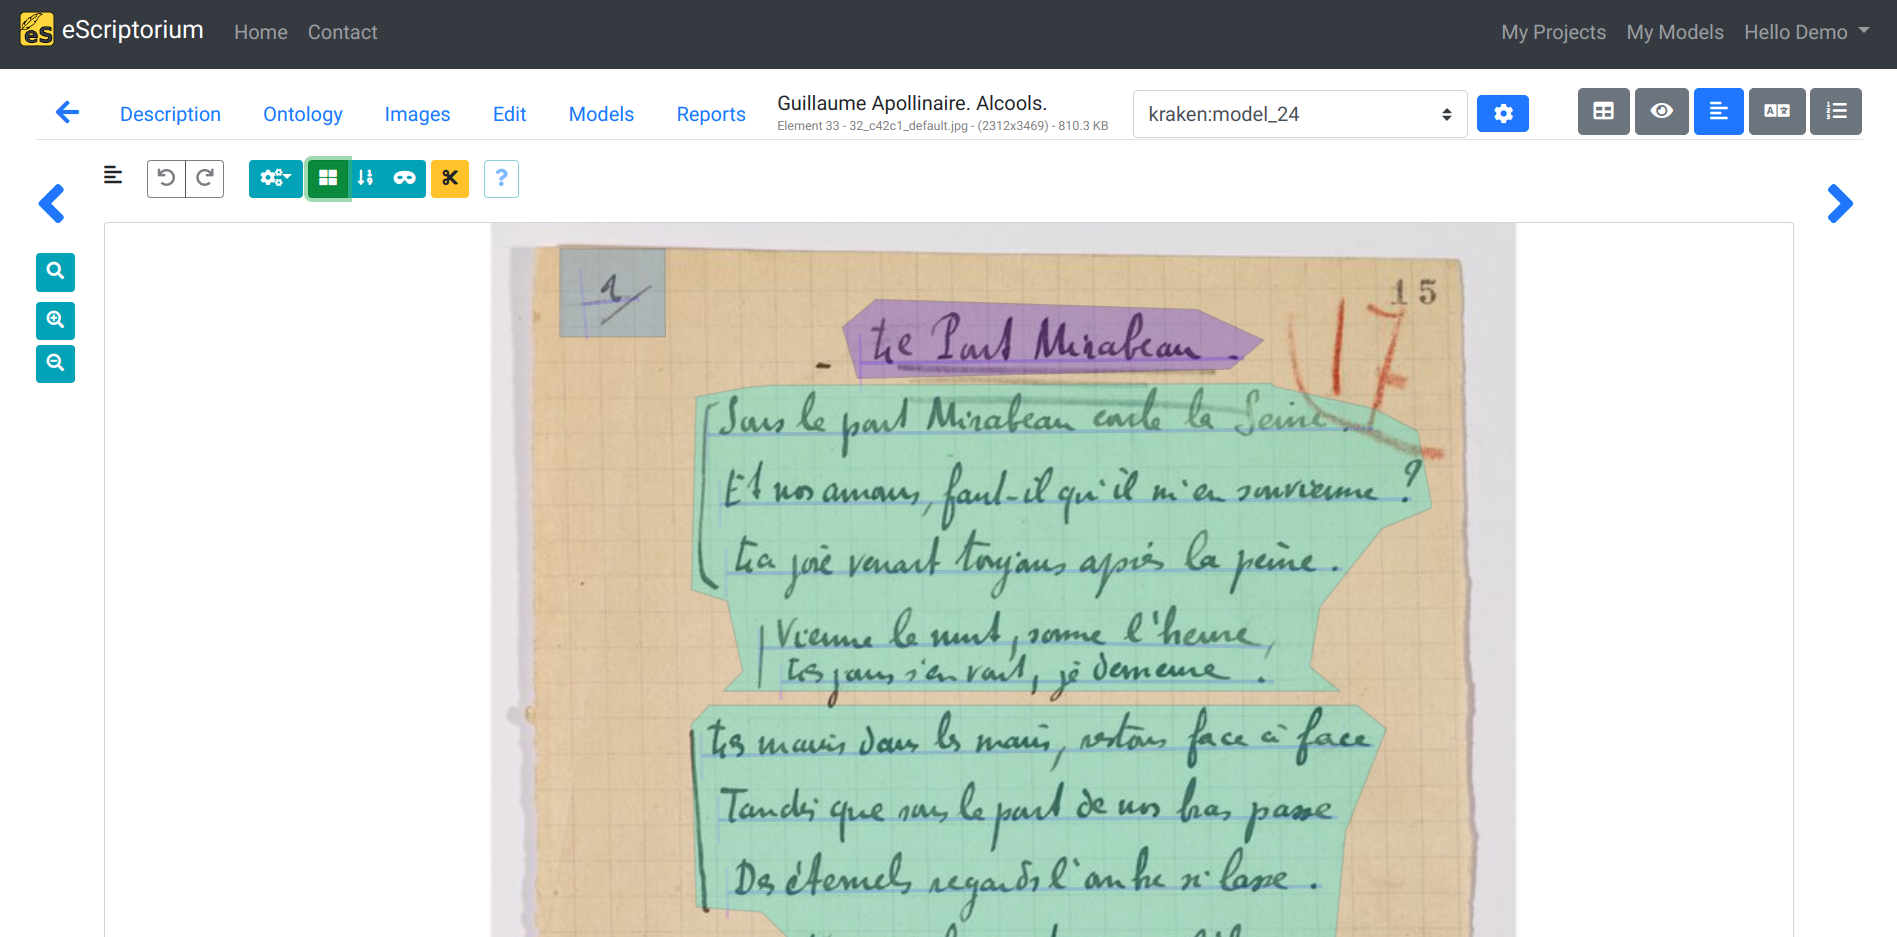 eScriptorium
Home
Contact
My Projects
My Models
Hello Demo
Description
Ontology
Images
Edit
Models
Reports
Guillaume Apollinaire. Alcools.
Element 33 - 32_c42c1_default.jpg - (2312x3469) - 810.3 KB
kraken:model_24
1/
15
17
Le Pont Mirabeau -
Sous le pont Mirabeau coule la Seine.
Et nos amours, faut-il qu'il m'en souvienne ?
La joie venait toujours après la peine.
Vienne la nuit, sonne l'heure,
Les jours s'en vont, je demeure.
Les mains dans les mains, restons face à face
Tandis que sous le pont de nos bras passe
Des éternels regards l'onde si lasse.